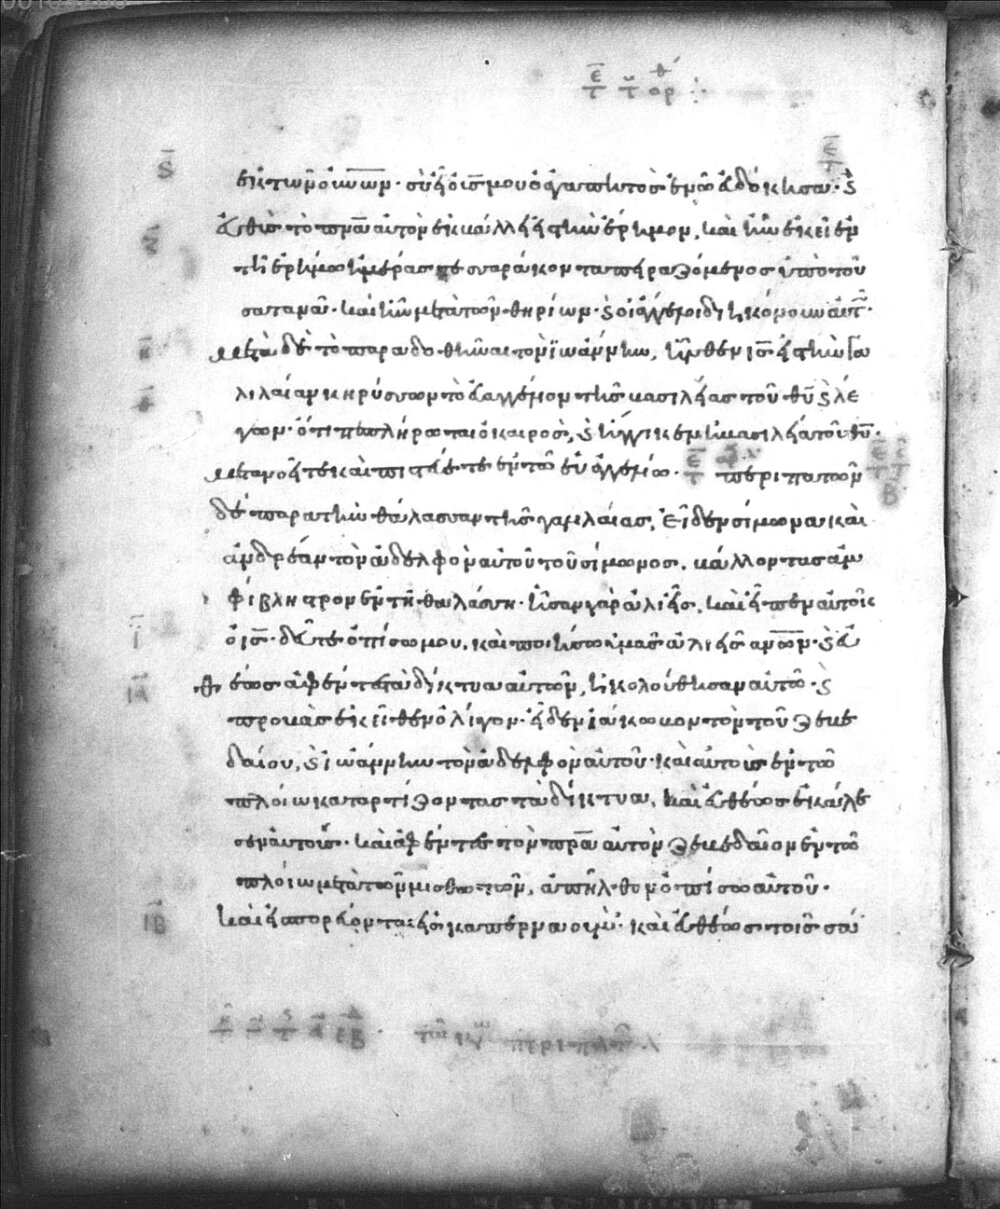 ε̄ τ
ἐκ τῶν οὐν̅ω̅ν· σὺ εἶ ὁ υἱς̅ μου ὁ ἀγαπητὸς ἐν ᾧ εὐδόκησα· ϛ
εὐθὺς τὸ πν̅α αὐτὸν ἐκβάλλει εἰς τὴν ἔρημον, καὶ ἦν ἐκεῖ ἐν
τῇ ἐρήμω ἡμέρας τεσσαράκοντα πειραζόμενος ὑπὸ τοῦ
σατανᾶ· καὶ ἦν μετὰ τῶν θηρίων· ϛ οἱ ἄγγελοι διηκόνουν αὐτ·
μετὰ δὲ τὸ παραδοθῆναι τὸν ἰωάννην, ἦλθεν ις̅ εἰς τὴν γα
λιλαίαν κηρύσσων τὸ εὐαγγέλιον τῆς βασιλείας τοῦ θυ̅ ϛ λέ
γων· ὅτι πεπλήρωται ὁ καιρὸς, ϛ ἤγγικεν ἡ βασιλεία τοῦ θυ̅·
μετανοεῖτε καὶ πιστεύετε ἐν τῶ εὐαγγελίω· περιπατῶν
δὲ παρὰ τὴν θάλασσαν τῆς γαλιλαίας, εἶδεν σίμωνα καὶ
ἀνδρέαν τὸν ἀδελφὸν αὐτοῦ τοῦ σίμωνος, βάλλοντας ἀμ
φίβληστρον ἐν τῇ θαλάσση· ἦσαν γὰρ ἁλιεῖς, καὶ εἶπεν αὐτοῖς
ὁ ις̅· δεῦτε ὀπίσω μου, καὶ ποιήσω ὑμᾶς ἁλιεῖς αν̅ω̅ν· ϛ εὐ
θέως ἀφέντες τὰ δίκτυα αὐτῶν, ἠκολούθησαν αὐτῶ· ϛ
προβὰς ἐκεῖθεν ὀλίγον· εἶδεν ἰάκωβον τὸν τοῦ ζεβε
δαίου, ϛ ἰωάννην τὸν ἀδελφὸν αὐτοῦ· καὶ αὐτοὺς ἐν τῶ
πλοίω καταρτίζοντας τὰ δίκτυα, καὶ εὐθέως ἐκάλε
σεν αὐτούς· καὶ ἀφέντες τὸν πρ̅α αὐτῶν ζεβεδαῖον ἐν τῶ
πλοίω μετὰ τῶν μισθωτῶν, ἀπῆλθον ὀπίσω αὐτοῦ·
καὶ εἰσπορεύονται εἰς καπερναούμ· καὶ εὐθέως τοῖς σά